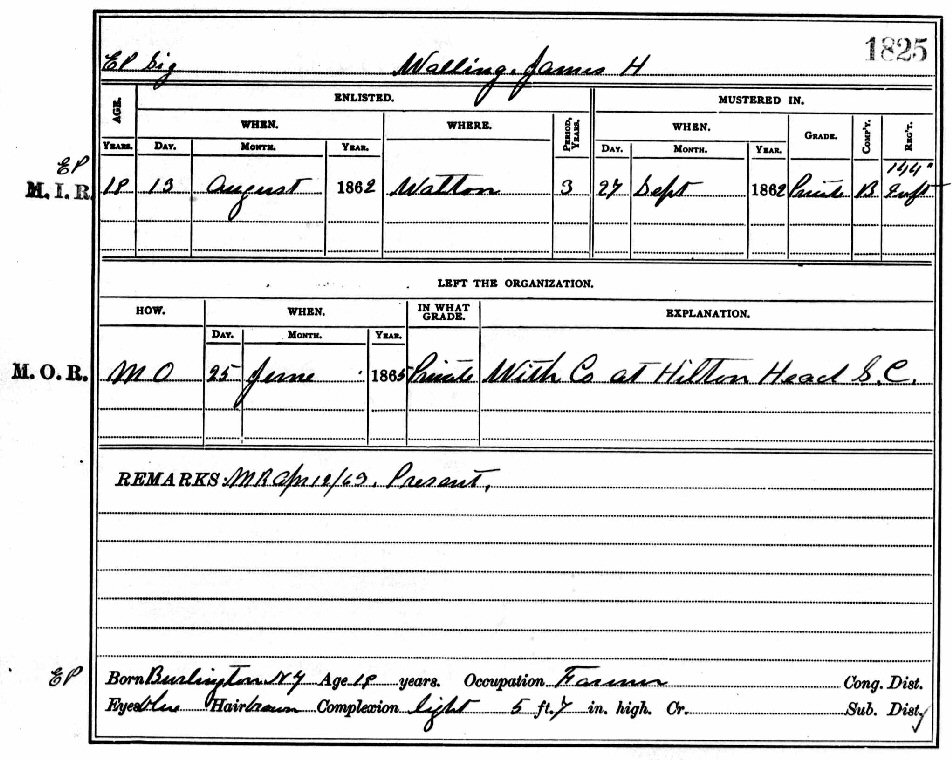 1825
EP Sig Walling, James H
AGE. ENLISTED. MUSTERED IN.
WHEN. WHERE. PERIOD, YEARS. WHEN. GRADE. COMP'Y. REG'T.
YEARS. DAY. MONTH. YEAR. DAY. MONTH. YEAR.
EP 144"
M. I. R. 18 13 August 1862 Walton 3 27 Sept 1862 Private B Inft
LEFT THE ORGANIZATION.
HOW. WHEN. IN WHAT GRADE. EXPLANATION.
DAY. MONTH. YEAR.
M. O. R. M O 25 June 1865 Private With Co at Hilton Head S. C.
REMARKS: MR Apr 12/63. Present.
EP Born Burlington NY Age 18 years. Occupation Farmer Cong. Dist.
Eyes blue Hair brown Complexion light 5 ft. 7 in. high. Cr. Sub. Dist.